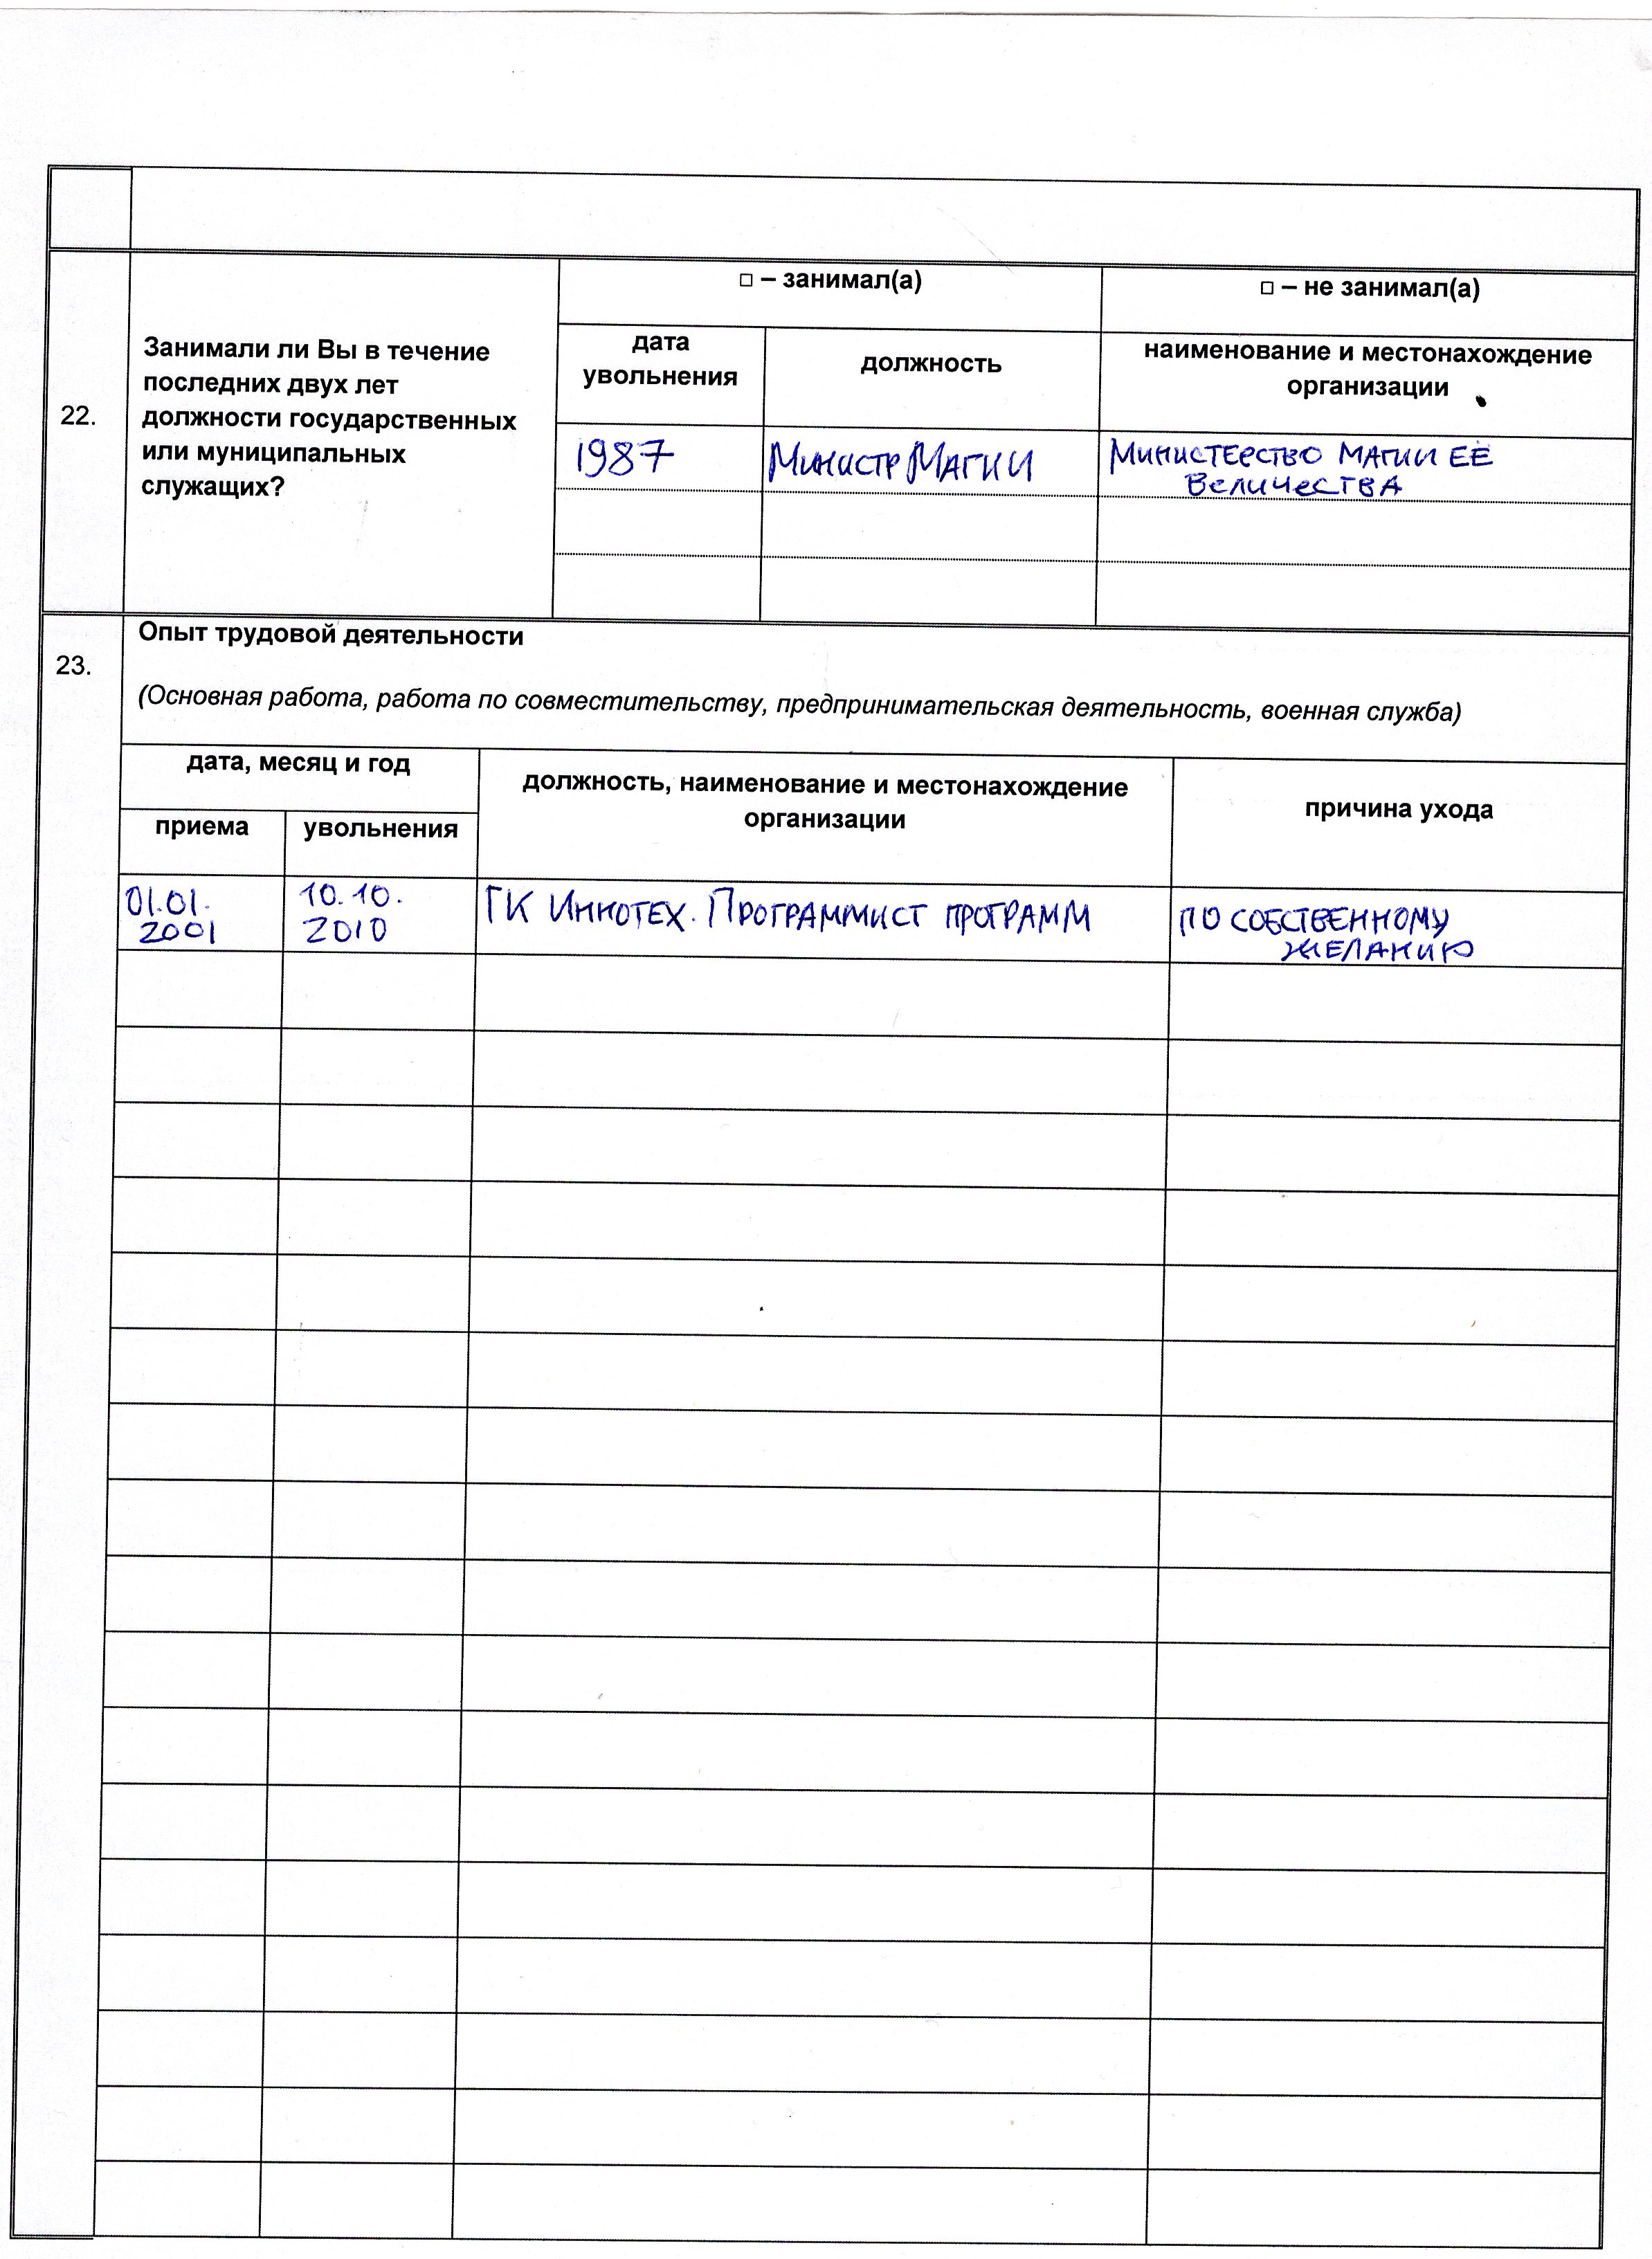 □ – занимал(а)
□ – не занимал(а)
22.
Занимали ли Вы в течение
последних двух лет
должности государственных
или муниципальных
служащих?
дата
увольнения
должность
наименование и местонахождение
организации
1987
Министр Магии
Министерство магии ЕЁ
Величества
23.
Опыт трудовой деятельности
(Основная работа, работа по совместительству, предпринимательская деятельность, военная служба)
дата, месяц и год
приема
увольнения
должность, наименование и местонахождение
организации
причина ухода
01.01.
2001
10.10.
2010
ГК Иннотех. Программист программ
по собственному
желанию